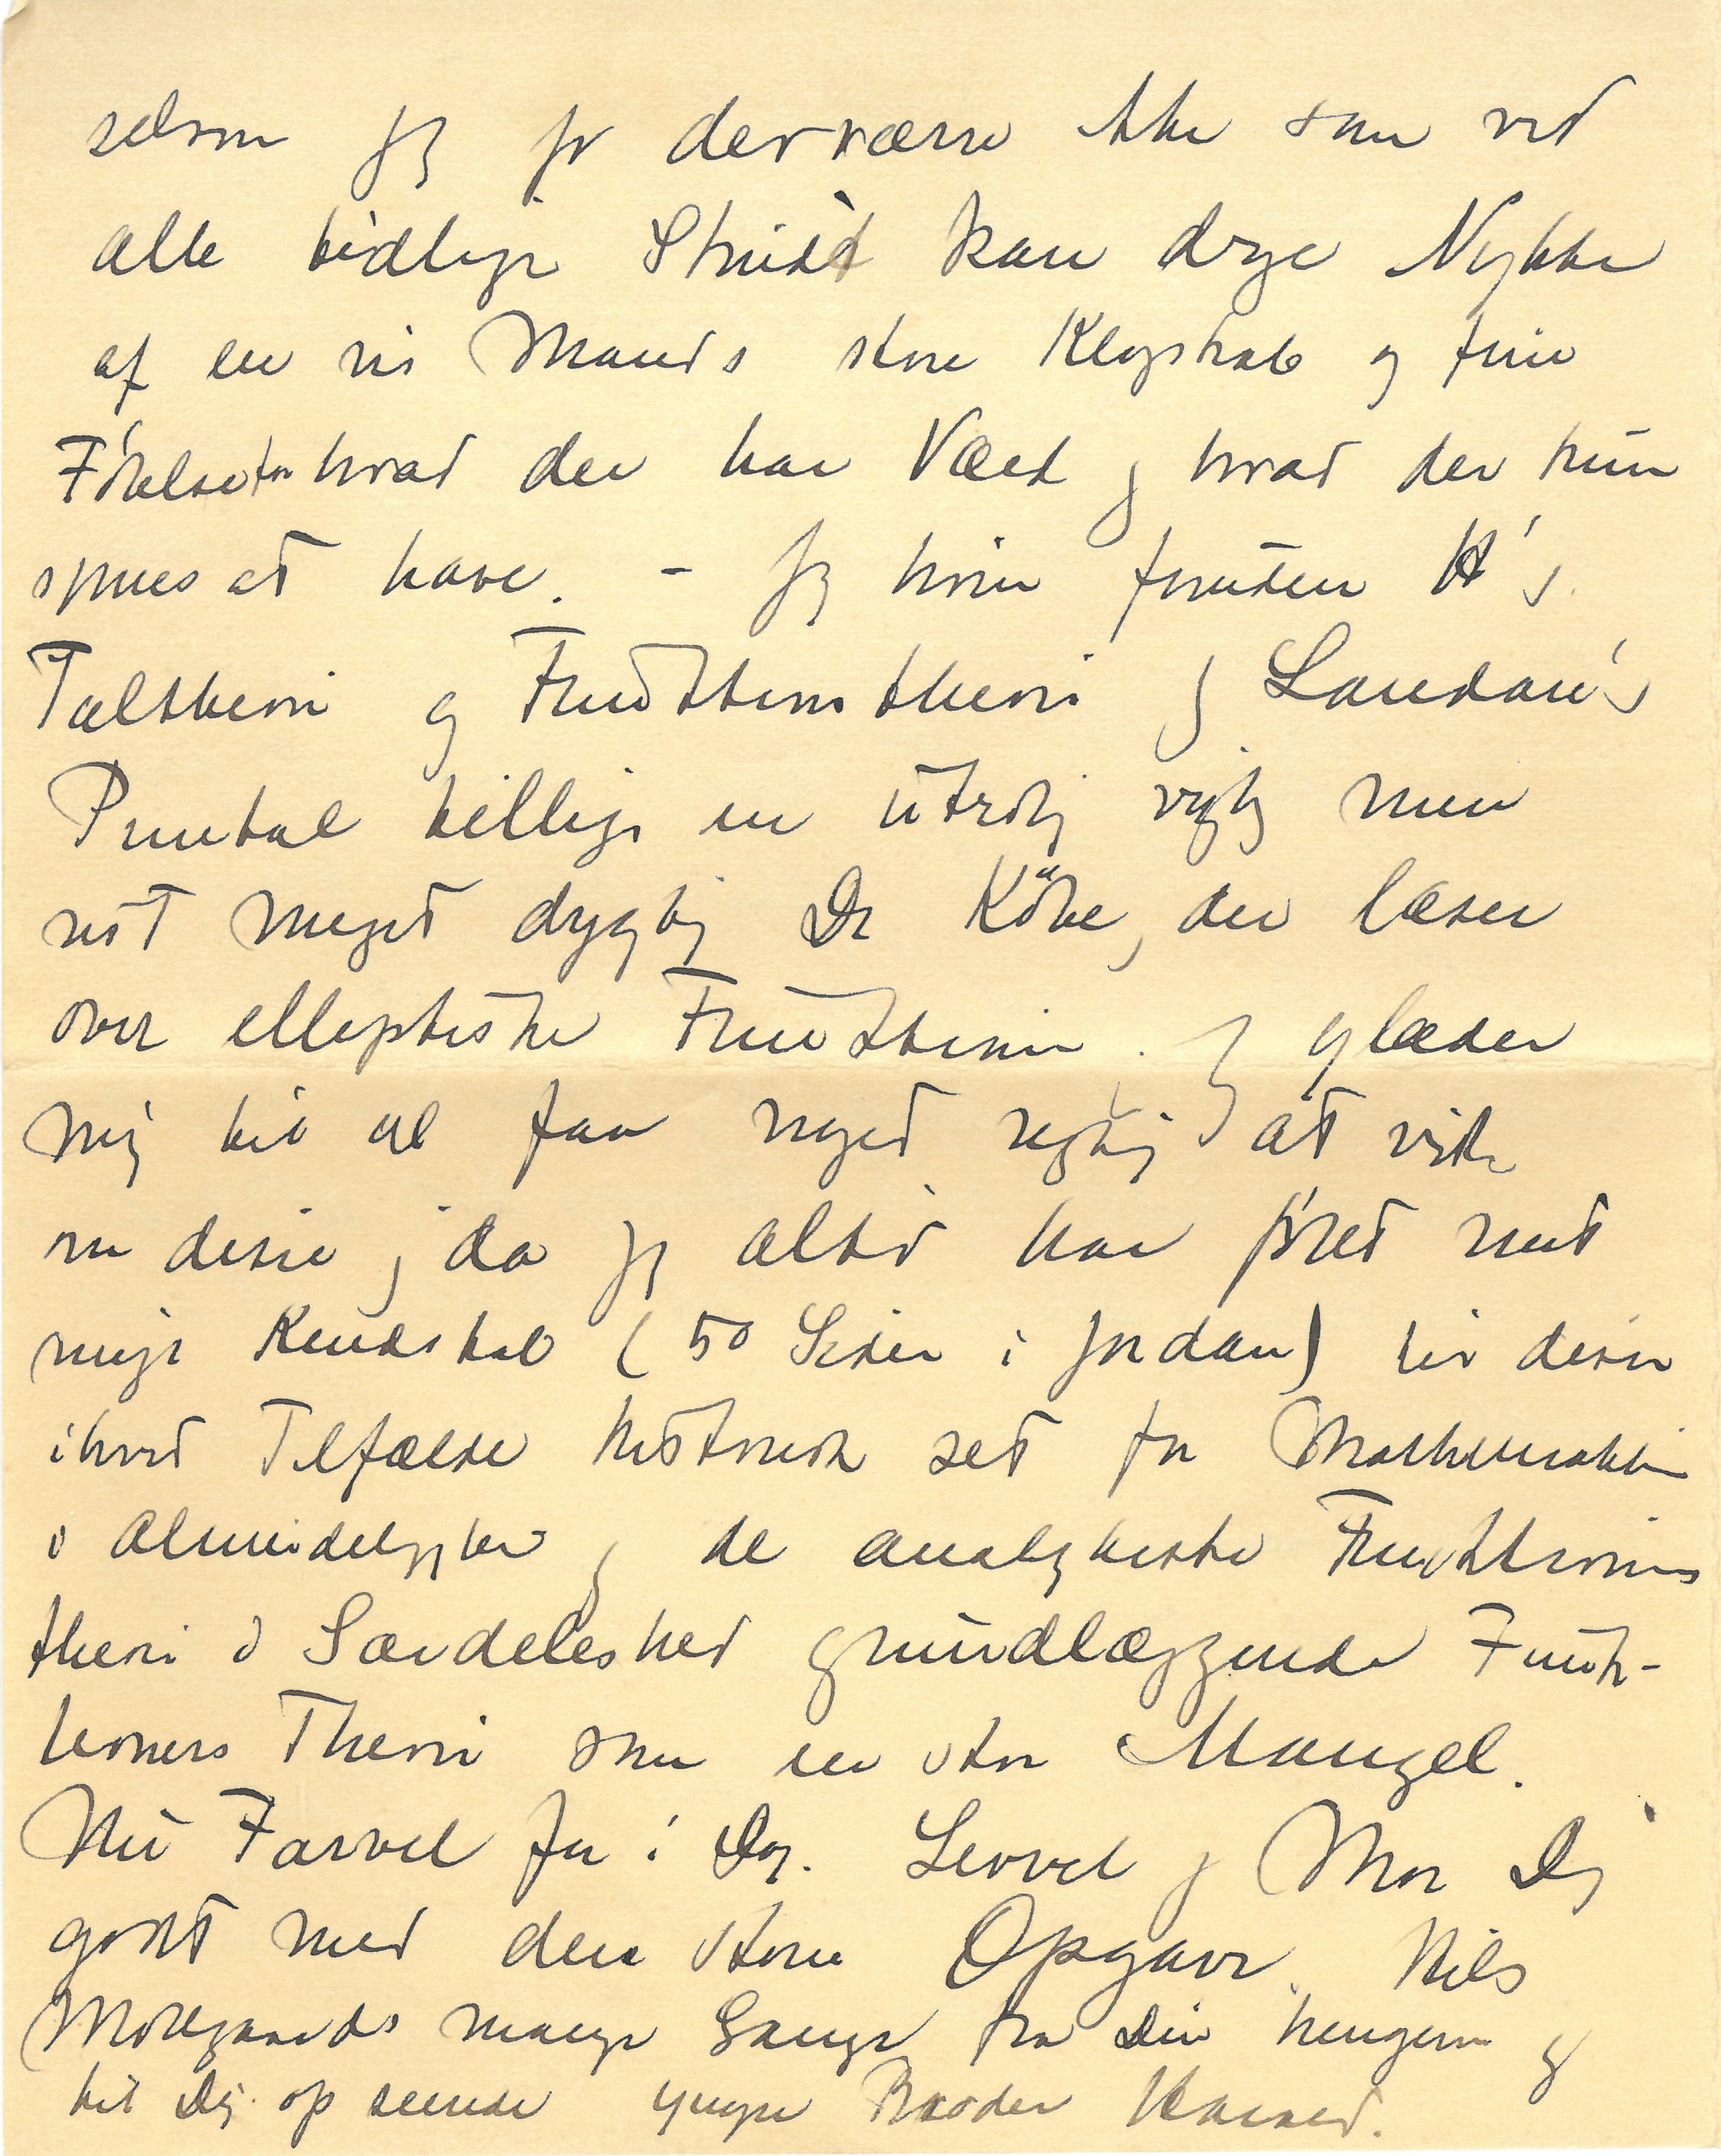 selvom jeg jo derværre ikke som ved
alle tidligere Skridt kan drage Nytte
af en vis Mands store Klogskab og fine
Følelse for hvad der har Værd og hvad der kun
synes at have. - Jeg hører foruden H's
Taltheori og Funktionstheori og Landau's
Primtal tillige en utrolig vigtig men
vist meget dygtig Dr Köbe, der læser
over elleptiske Funktioner. Jeg glæder
mig til at faa noget rigtig at vide
om disse, da jeg altid har følt mit
ringe Kendskab (50 Sider i Jordan) til disse
ihvert Tilfælde historisk set for Mathematikken
i Almindelighed og de analytiske Funktioners
theori i Særdeleshed grundlæggende Funk-
tioners Theori som en stor Mangel.
Nu Farvel for i Dag. Levvel og Mor Dig
godt med den store Opgave. Hils
Mølgaards mange Gange fra Din hengivne og
til Dig op seende yngre Broder Harald.